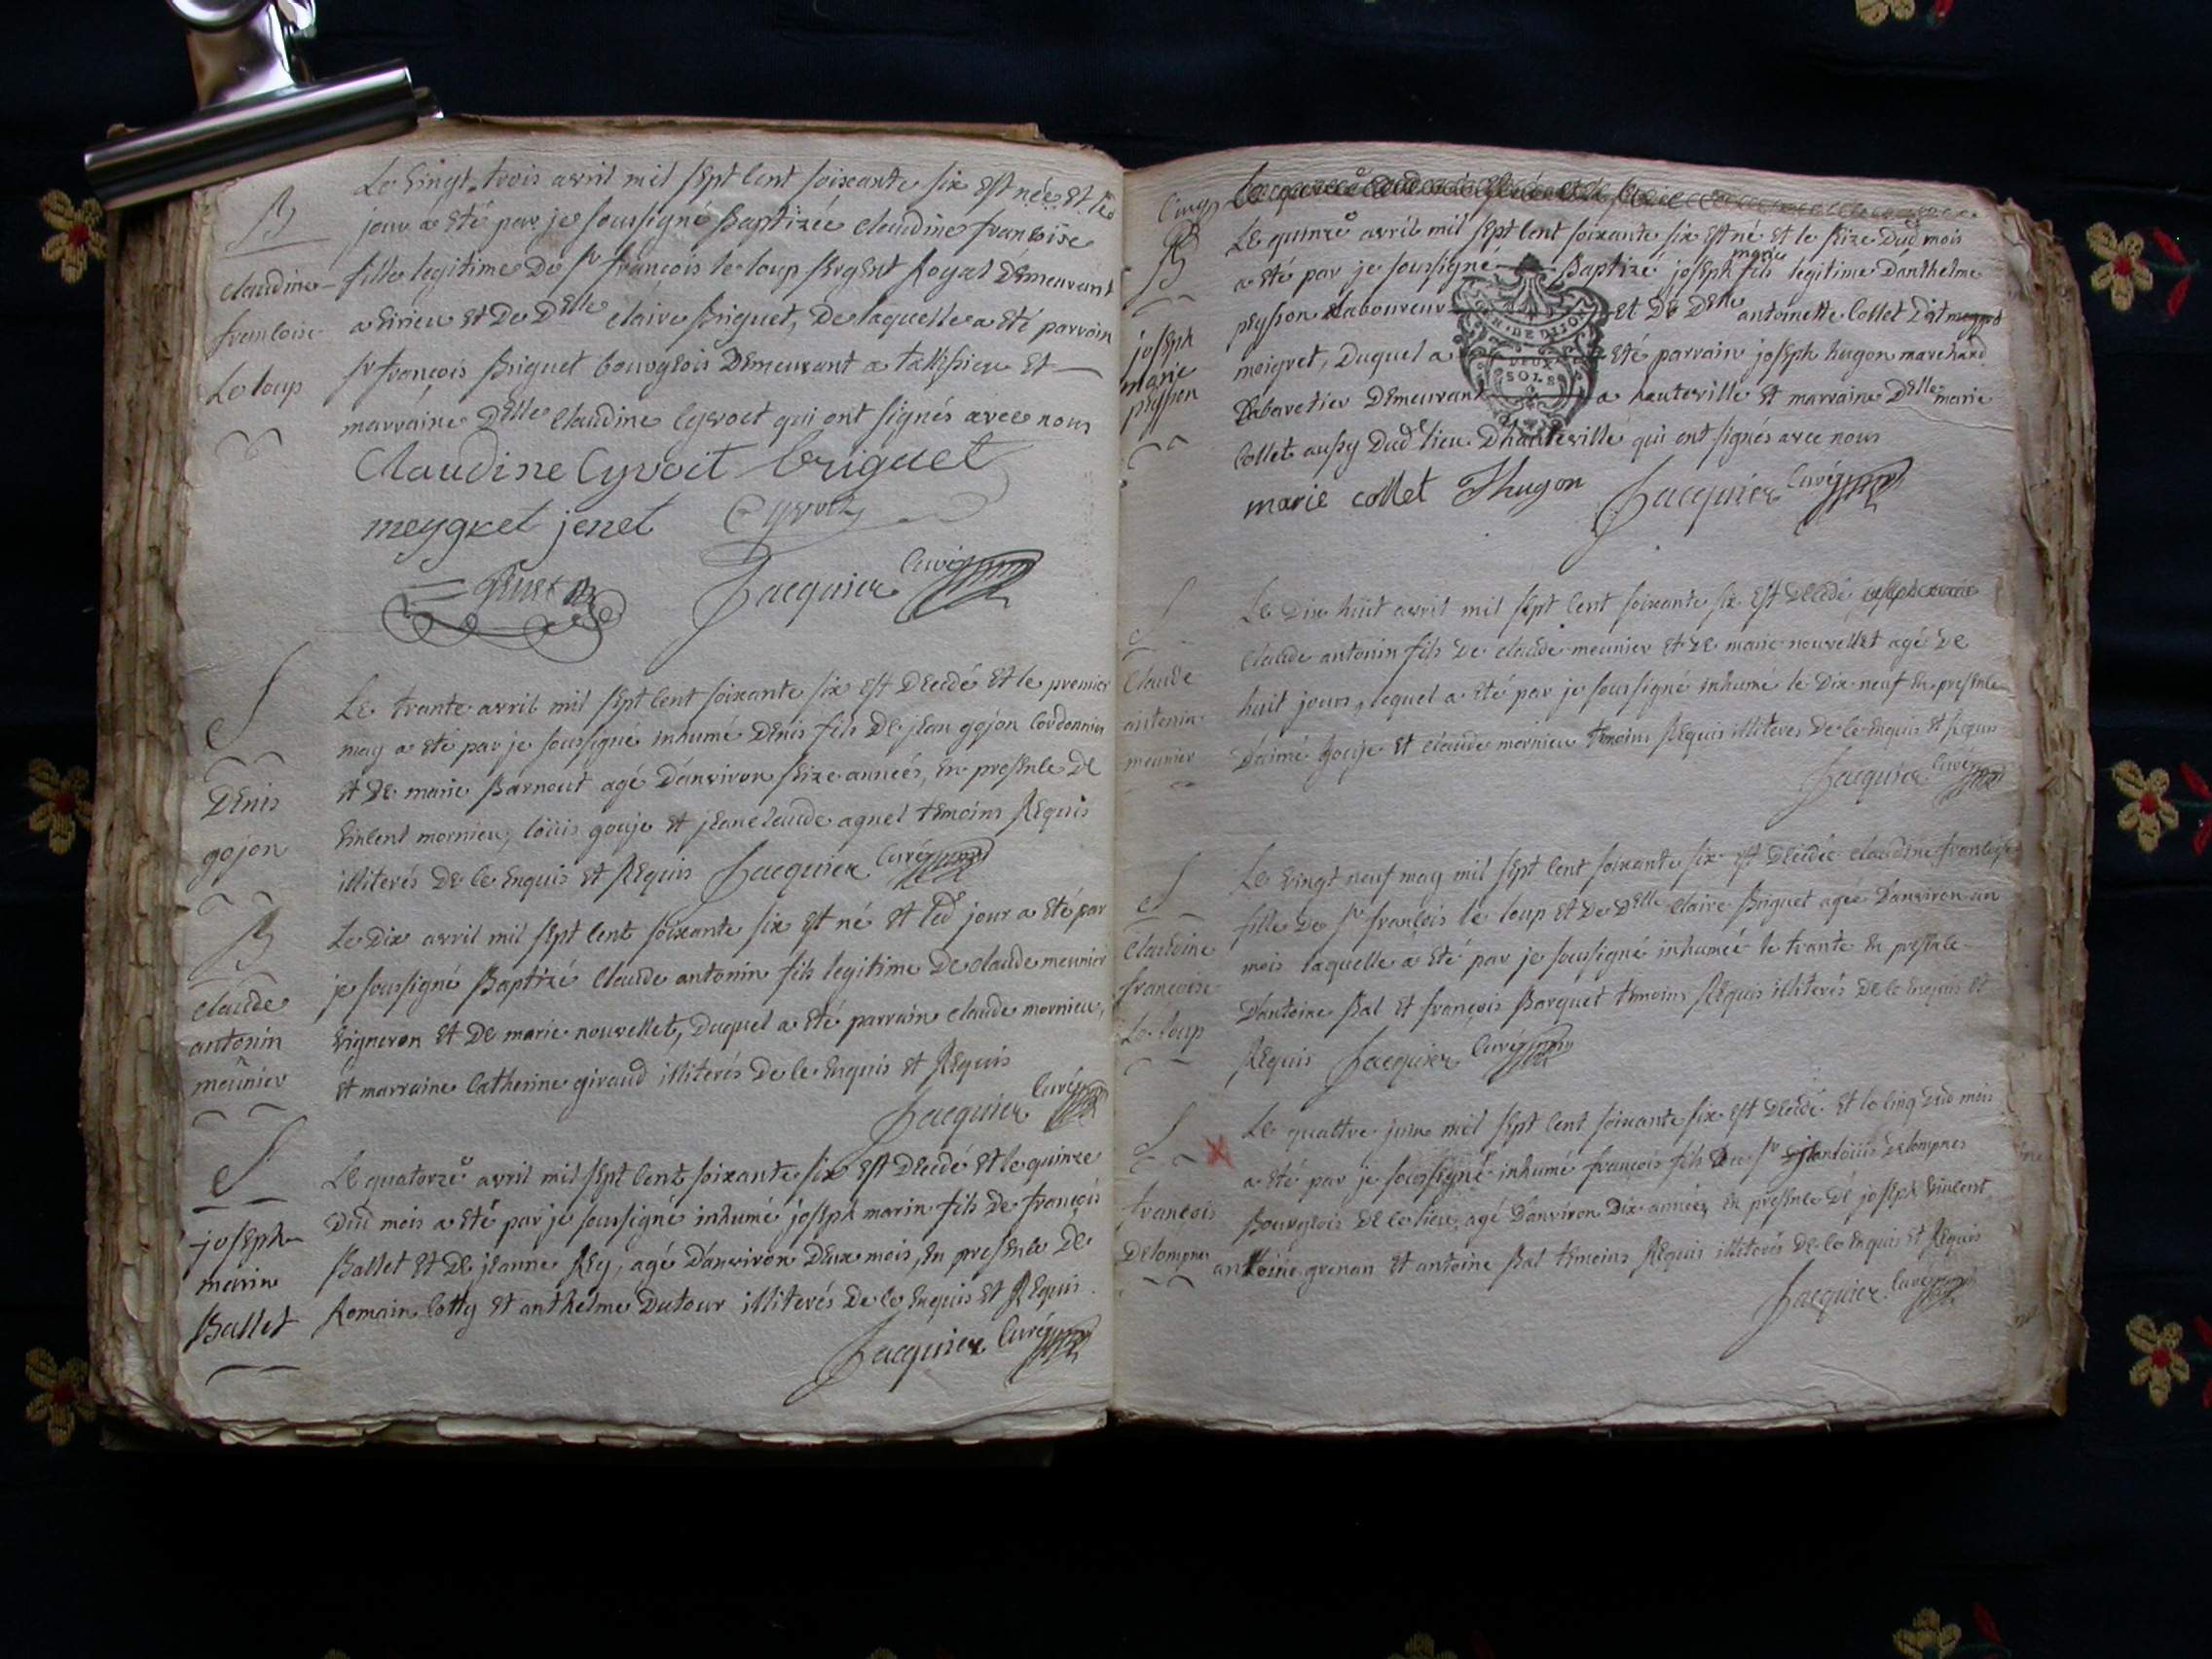 B
claudine
francoise
Le loup
Le vingt trois avril mil sept cent soixante six est née et led
jour a eté par je soussigné Baptizée claudine francoise
fille legitime De sr francois le loup sergent Royal Demeurant
a virieu et De Delle claire Briguet, De laquelle a eté parrain
sr françois Briguet bourgeois Demeurant a talissieu et
marraine Delle claudine cyvoct qui ont signés avec nous
Claudine Cyvoit briguet
meygret jenet Cyvoct
Jacquier curé
S
Denis
gojon
Le trante avril mil sept cent soixante six est Decedé et le premier
may a eté par je soussigné inhumé Denis fils De jean gojon cordonnier
et De marie Barnout agé D'anviron seize années, en presence De
vincent mornieu, loüis gouje et jeanclaude aguel temoins Requis
illiterés De ce enquis et Requis Jacquier curé
B
claude
antonin
meunier
Le Dix avril mil sept cent soixante six est né et led jour a eté par
je soussigné Baptizé claude antonin fils legitime De claude meunier
vigneron et De marie nouvellet, Duquel a eté parrain claude mornieu,
et marraine catherine giraud illiterés De ce enquis et Requis
Jacquier curé
S
joseph
marin
Ballet
Le quatorze avril mil sept cent soixante six est Decedé et le quinze
Dud mois a eté par je soussigné inhumé joseph marin fils De françois
Ballet et De jeanne Rey, agé D'anviron Deux mois, en presence De
Romain cotty et anthelme Dutour illiterés De ce enquis et Requis
Jacquier curé
cinq
B
joseph
marie
peysson
Le quinze avril mil sept cent soixante six est né et le seize Dud mois
a eté par je soussigné Baptizé joseph marie fils legitime D'anthelme
peysson Laboureur et De Delle antoinette collet Dit
meigret, Duquel a eté parrain joseph hugon marchand
Cabaretier Demeurant a hauteville et marraine Delle marie
Collet aussy Dud lieu D'hauteville qui ont signés avec nous
DEUX
SOLS
marie collet Jhugon Jacquier curé
S
claude
antonin
meunier
Le Dix huit avril mil sept cent soixante six est Decedé
claude antonin fils De claude meunier et De marie nouvellet agé De
huit jours, lequel a eté par je soussigné inhumé le Dix neuf en presence
D'aimé gouje et claude mornieu temoins Requis illiteres De ce enquis et Requis
Jacquier curé
S
claudine
françoise
Le loup
Le vingt neuf may mil sept cent soixante six est Decedée claudine francoise
fille De sr francois le loup et De Delle claire Briguet agée D'anviron un
mois laquelle a eté par je soussigné inhumée le trante en presence
D'antoine Bal et françois Barquet temoins Requis illiterés De ce enquis et
Requis Jacquier curé
S
françois
Delompnes
Le quattre juin mil sept cent soixante six est Decedé et le cinq dud mois
a eté par je soussigné inhumé françois fils De sr antoine Delompnes
Bourgeois De ce lieu, agé D'anviron Dix années en presence De joseph vincent
antoine grinon et antoine Bal temoins Requis illiterés De ce enquis et Requis
Jacquier curé